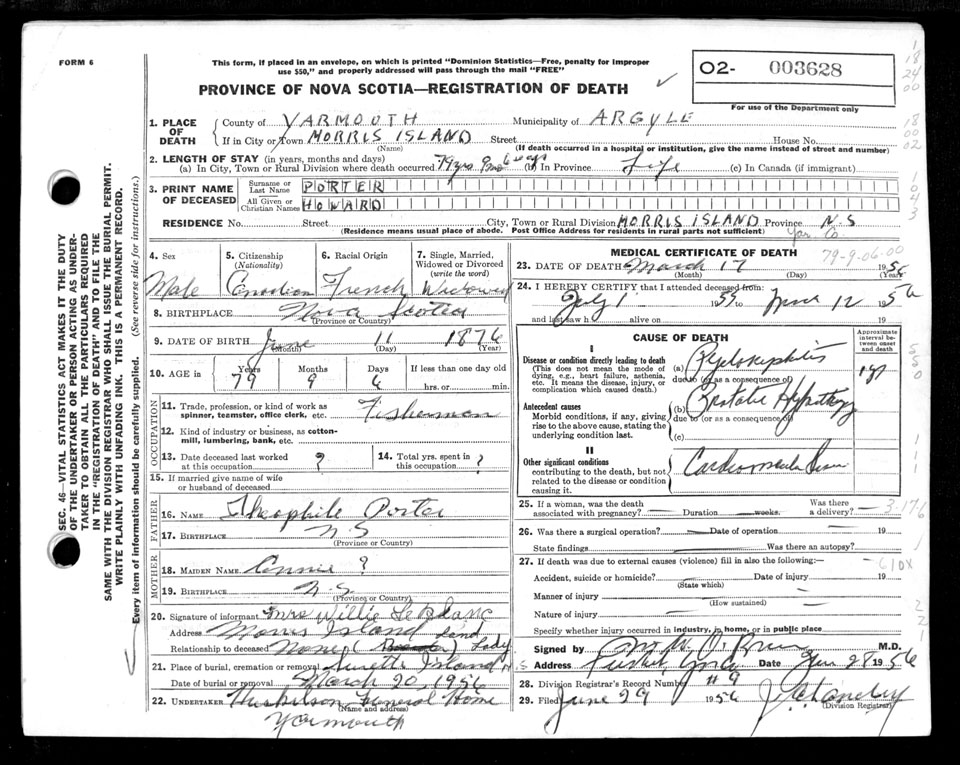 FORM 6
This form, if placed in an envelope, on which is printed "Dominion Statistics—Free, penalty for improper
use $50," and properly addressed will pass through the mail "FREE"
O2- 003628
For use of the Department only
PROVINCE OF NOVA SCOTIA—REGISTRATION OF DEATH
1. PLACE OF DEATH
County of YARMOUTH Municipality of ARGYLE
If in City or Town MORRIS ISLAND Street House No.
(Name) (If death occurred in a hospital or institution, give the name instead of street and number)
2. LENGTH OF STAY (in years, months and days)
(a) In City, Town or Rural Division where death occurred 79 yrs 9 mo 6 days (b) In Province Life (c) In Canada (if immigrant)
3. PRINT NAME OF DECEASED
Surname or Last Name PORTER
All Given or Christian Names HOWARD
RESIDENCE No. Street City, Town or Rural Division MORRIS ISLAND Province N.S
(Residence means usual place of abode. Post Office Address for residents in rural parts not sufficient) Yar. Co.
4. Sex Male
5. Citizenship (Nationality) Canadian
6. Racial Origin French
7. Single, Married, Widowed or Divorced (write the word) Widowed
8. BIRTHPLACE Nova Scotia
(Province or Country)
9. DATE OF BIRTH June 11 1876
(Month) (Day) (Year)
10. AGE in Years Months Days If less than one day old
79 9 6 hrs. or min.
OCCUPATION
11. Trade, profession, or kind of work as
spinner, teamster, office clerk, etc. Fisherman
12. Kind of industry or business, as cotton-
mill, lumbering, bank, etc.
13. Date deceased last worked
at this occupation ?
14. Total yrs. spent in
this occupation ?
15. If married give name of wife
or husband of deceased
FATHER
16. NAME Theophile Porter
17. BIRTHPLACE N S
(Province or Country)
MOTHER
18. MAIDEN NAME Connie ?
19. BIRTHPLACE N.S.
(Province or Country)
20. Signature of informant Mrs Willie LeBlanc
Address Morris Island
Relationship to deceased None ( Land Lady
21. Place of burial, cremation or removal Surette Island N.S
Date of burial or removal March 20, 1956
22. UNDERTAKER Huskilson Funeral Home
(Name and address)
Yarmouth
MEDICAL CERTIFICATE OF DEATH
79-9-06-00
23. DATE OF DEATH March 17 1956
(Month) (Day) (Year)
24. I HEREBY CERTIFY that I attended deceased from:
July 1 1955 to 12 1956
and last saw h alive on 19
CAUSE OF DEATH
Approximate interval between onset and death
I
Disease or condition directly leading to death
(This does not mean the mode of dying, e.g., heart failure, asthenia, etc. It means the disease, injury, or complication which caused death.)
(a) Pyelonephritis 1 yr
due to (or as a consequence of)
Antecedent causes
Morbid conditions, if any, giving rise to the above cause, stating the underlying condition last.
(b) Prostatic Hypertrophy
due to (or as a consequence of)
(c)
II
Other significant conditions
contributing to the death, but not related to the disease or condition causing it.
Cardiovascular
25. If a woman, was the death
associated with pregnancy? Duration weeks. Was there a delivery?
26. Was there a surgical operation? Date of operation 19
State findings Was there an autopsy?
27. If death was due to external causes (violence) fill in also the following:—
Accident, suicide or homicide? Date of injury 19
(State which)
Manner of injury
(How sustained)
Nature of injury
Specify whether injury occurred in industry, in home, or in public place
610X
Signed by O'Brien M.D.
Address Date 28 1956
28. Division Registrar's Record Number #9
29. Filed June 29 1956
(Division Registrar)
SEC. 46—VITAL STATISTICS ACT MAKES IT THE DUTY
OF THE UNDERTAKER OR PERSON ACTING AS UNDER-
TAKER TO OBTAIN ALL THE PARTICULARS REQUIRED
IN THE "REGISTRATION OF DEATH" AND TO FILE THE
SAME WITH THE DIVISION REGISTRAR WHO SHALL ISSUE THE BURIAL PERMIT.
WRITE PLAINLY WITH UNFADING INK. THIS IS A PERMANENT RECORD.
Every item of information should be carefully supplied. (See reverse side for instructions.)